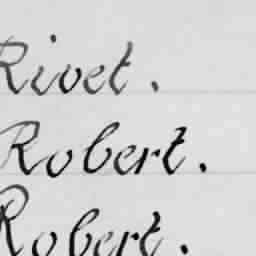 Rivet.
Robert.
Robert.